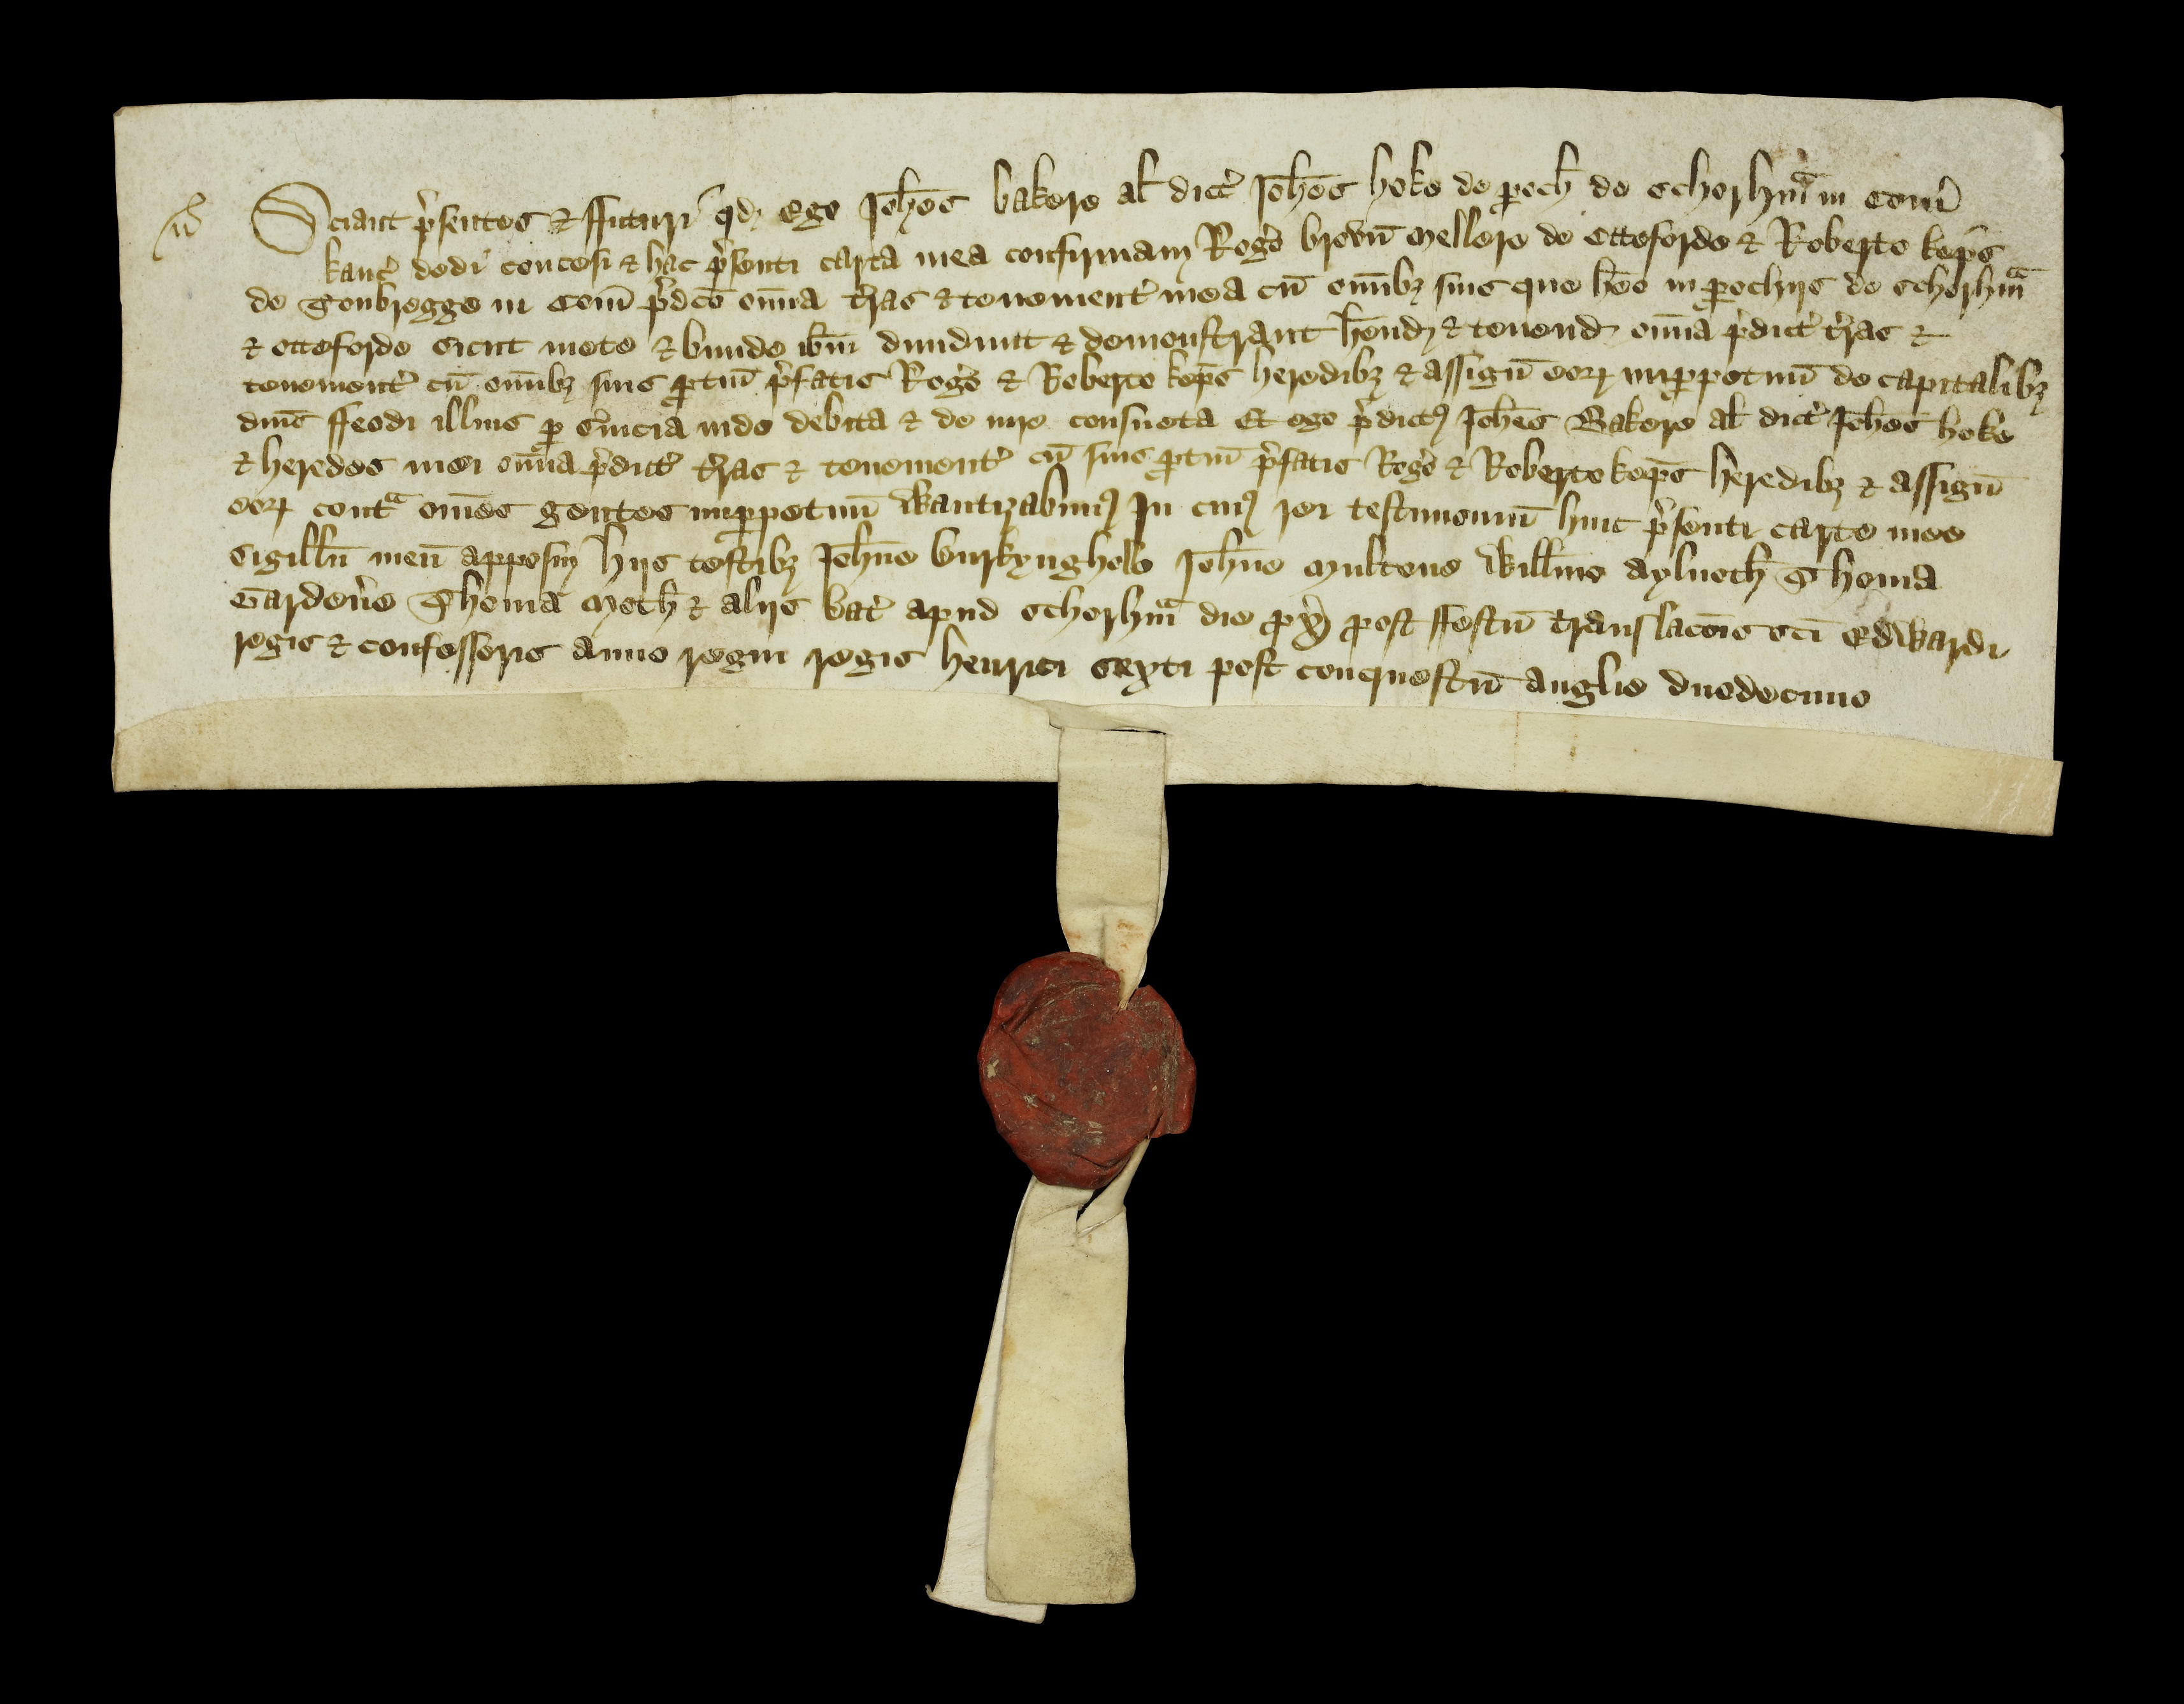 Sciant p͛sentes & ffuturi qd ego Joh̄es bakere al̄ dict͛ Joh̄es hoke de ꝑoch̄ de Schorhm̄ in Com̄
kanc͛ dedi concessi & hac p͛senti carta mea confirmaui Rog͛o brovn̄ Mellere de Otteforde & Roberto kep̄s
de Tonbregge in Com̄ p͛dc̄o om̄ia t͛ras & tenement͛ mea cū om̄ibȝ suis que hēo in ꝑochijs de Schorhm̄
& Otteforde sicut mete & bunde ibm̄ diuidunt & demonstrant hēnd & tenend om̄ia p͛dict͛ t͛ras &
tenement͛ cū om̄ibȝ suis ꝑtin̄ p͛fatis Rog͛o & Roberto kep̄s heredibȝ & assign̄ eoꝝ inꝑpetuū de capitalibȝ
dn̄is ffeodi illius ꝑ s͛uicia inde debita & de iure consueta Et ego p͛dictꝰ Joh̄es Bakere al̄ dict͛ Joh̄es hoke
& heredes mei om̄ia p͛dict͛ t͛ras & tenement͛ cū suis ꝑtin̄ p͛fatis Rog͛o & Roberto kep̄s heredibȝ & assign̄
eoꝝ contᵃ om̄es gentes inꝑpetuū Warantizabimꝰ In cuiꝰ rei testimoniū huic p͛senti carte mee
sigillū meū apposui hijs testibȝ Joh̄ne John̄e Multone Will̄mo Ayluoth̄ Thoma
Garden͛e Thoma Moth̄ & alijs Dat͛ apud Schorhm̄ die ꝓxͦ post ffestū translacōis sc̄i Edwardi
regis & confessoris anno regni regis henrici sexti post conquestū anglie duodecimo